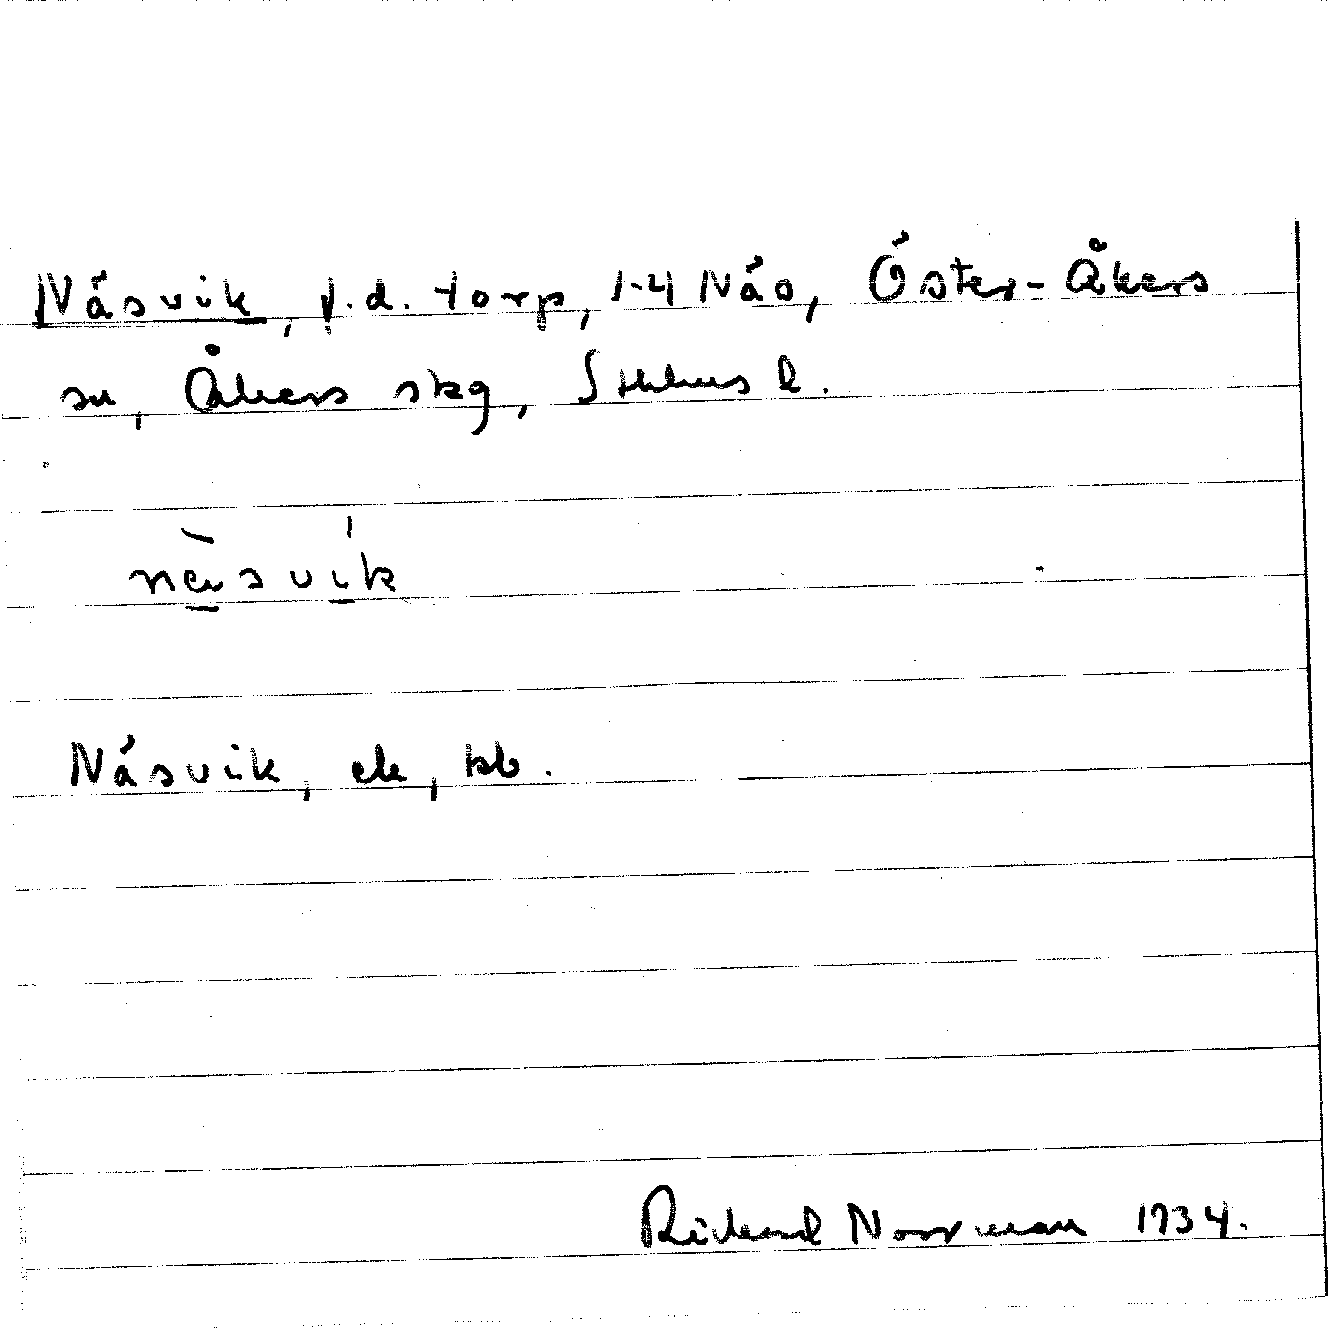 Näsvik, f.d. torp, 1-4 Näs, Öster-Åkers
sn, Åkers skg, Sthlms l.
nä̀svi̍k
Näsvik, ek, kb.
Rickard Norrman 1934.